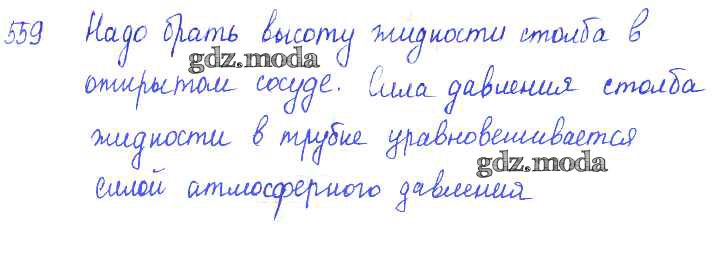 559 Надо брать высоту жидкости столба в
gdz.moda
открытом сосуде. Сила давления столба
жидкости в трубке уравновешивается
gdz.moda
силой атмосферного давления